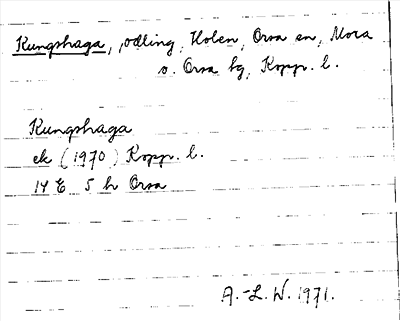 Kungshaga, odling, Holen, Orsa sn, Mora
o. Orsa tg, Kopp. l.
Kungshaga
ek (1970) Kopp. l.
14 E 5 h Orsa
A.-L. W. 1971.